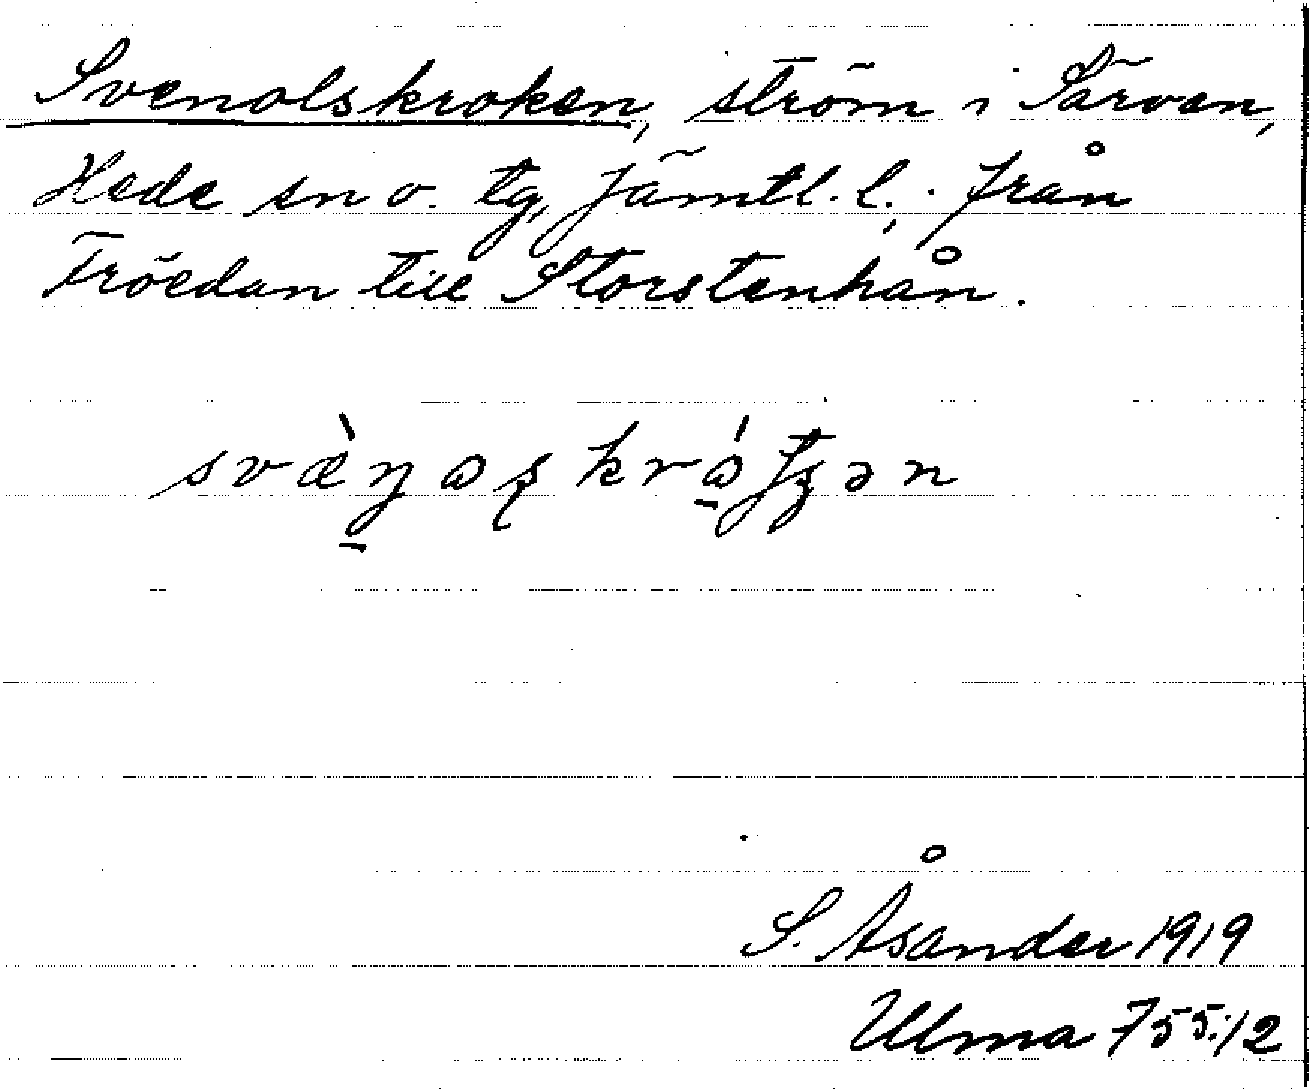 Svenolskroken, ström i Särvan,
Hede sn o. tg, Jämtl. l., från
Fröedan till Storstenhån.
S. Åsander 1919
Ulma 755:12